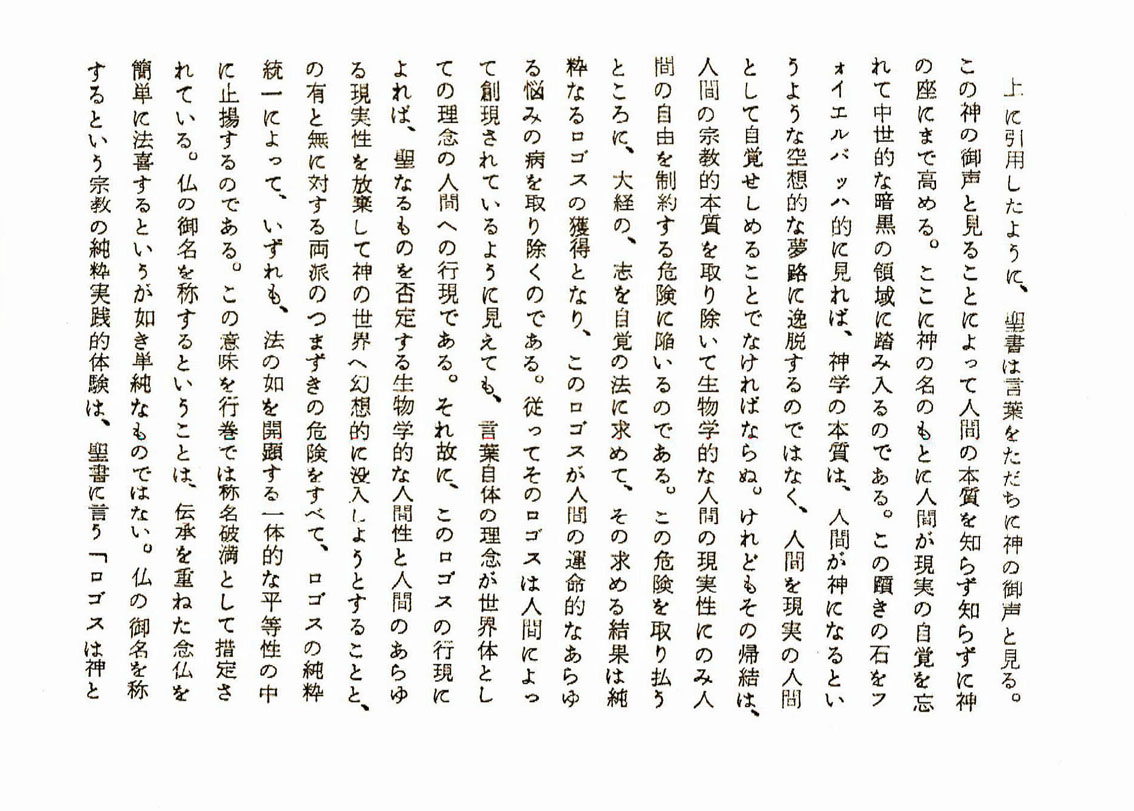 上に引用したように、聖書は言葉をただちに神の御声と見る。
この神の御声と見ることによって人間の本質を知らず知らずに神
の座にまで高める。ここに神の名のもとに人間が現実の自覚を忘
れて中世的な暗黒の領域に踏み入るのである。この躓きの石をフ
ォイエルバッハ的に見れば、神学の本質は、人間が神になるとい
うような空想的な夢路に逸脱するのではなく、人間を現実の人間
として自覚せしめることでなければならぬ。けれどもその帰結は、
人間の宗教的本質を取り除いて生物学的な人間の現実性にのみ人
間の自由を制約する危険に陥いるのである。この危険を取り払う
ところに、大経の、志を自覚の法に求めて、その求める結果は純
粋なるロゴスの獲得となり、このロゴスが人間の運命的なあらゆ
る悩みの病を取り除くのである。従ってそのロゴスは人間によっ
て創現されているように見えても、言葉自体の理念が世界体とし
ての理念の人間への行現である。それ故に、このロゴスの行現に
よれば、聖なるものを否定する生物学的な人間性と人間のあらゆ
る現実性を放棄して神の世界へ幻想的に没入しようとすることと、
の有と無に対する両派のつまずきの危険をすべて、ロゴスの純粋
統一によって、いずれも、法の如を開顕する一体的な平等性の中
に止揚するのである。この意味を行巻では称名破満として措定さ
れている。仏の御名を称するということは、伝承を重ねた念仏を
簡単に法喜するというが如き単純なものではない。仏の御名を称
するという宗教の純粋実践的体験は、聖書に言う「ロゴスは神と